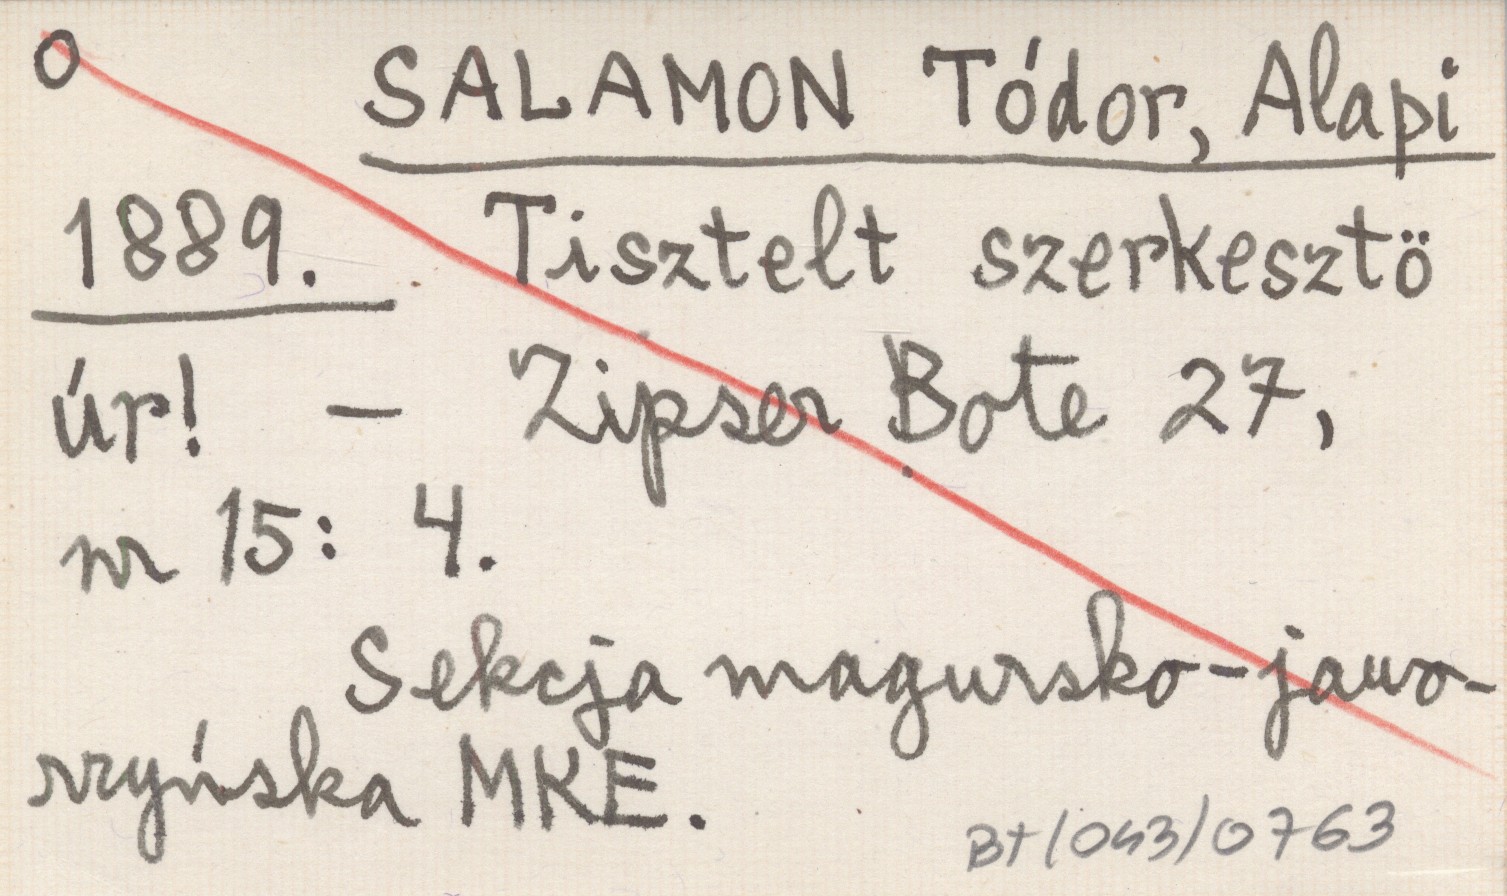 O SALAMON Tódor, Alapi
1889. Tisztelt szerkesztö
úr! – Zipser Bote 27,
nr 15: 4.
Sekcja magursko-jawo-
rzyńska MKE.
BT/043/0763